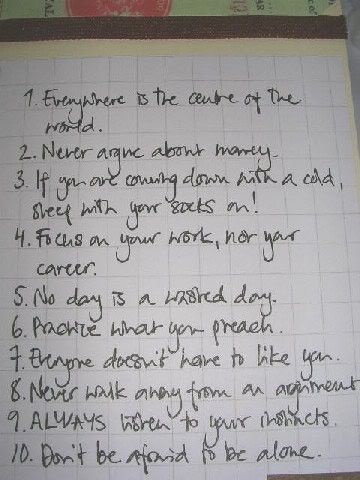 1. Everywhere is the centre of the
world.
2. Never argue about money.
3. If you are coming down with a cold,
sleep with your socks on!
4. Focus on your work, not your
career.
5. No day is a wasted day.
6. Practice what you preach.
7. Everyone doesn't have to like you.
8. Never walk away from an argument
9. ALWAYS listen to your instincts.
10. Don't be afraid to be alone.